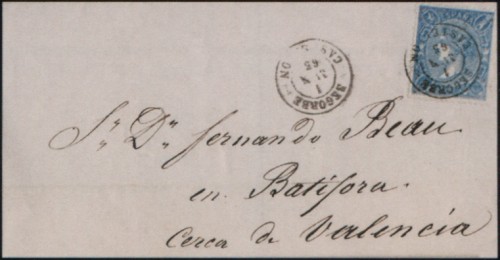 SEGORBE
Sr. Dn. Fernando Beau
en Batifora.
cerca de Valencia